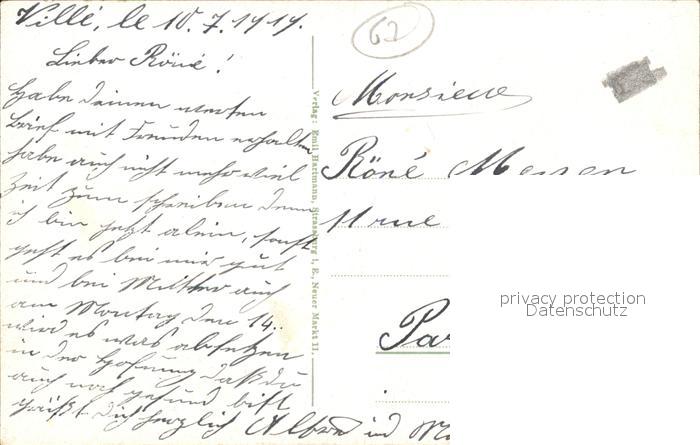 Villé, le 10.7.1919.
Lieber Röné!
Habe deinen werten
Brief mit Freuden erhalten
habe auch nicht mehr viel
Zeit zum schreiben denn
ich bin jetzt alein, sonst
geht es bei mir gut
und bei Mutter auch
am Montag den 14.
wird es was absetzen
in der Hofnung daß du
auch noch gesund bist
grüßt Dich herzlich
62
Monsieur
Röné
11 rue
Pa
Verlag: Emil Hartmann, Strassburg i. E., Neuer Markt 11.
privacy protection
Datenschutz